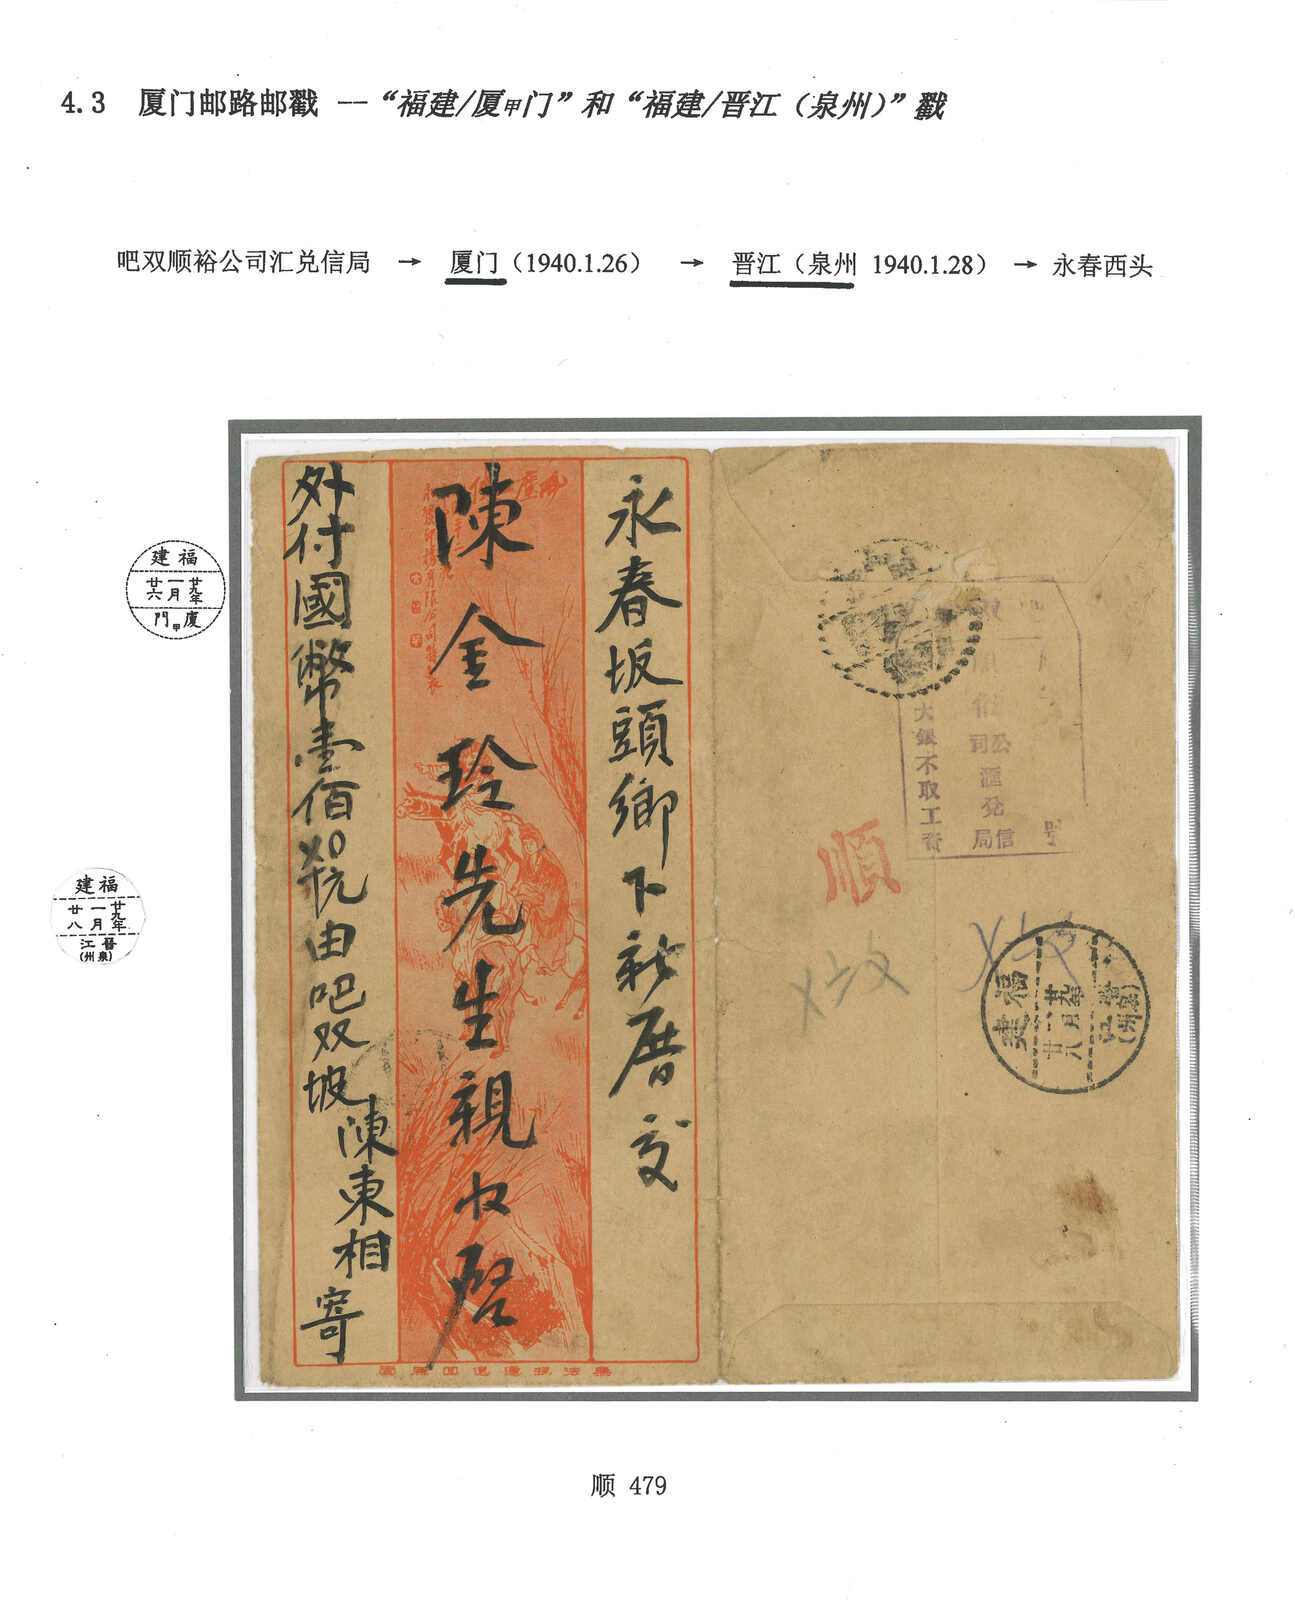 4.3 厦门邮路邮戳 --“福建/厦甲门”和“福建/晋江（泉州）”戳
吧双顺裕公司汇兑信局 → 厦门（1940.1.26） → 晋江（泉州 1940.1.28） → 永春西头
建福
廿六 一月 廿九年
門甲廈
建福
廿八 一月 廿九年
江晉
(州泉)
永春坂頭鄉下新厝交
陳金玲先生親收啓
外付國幣壹佰
由吧双坡陳東相寄
公司
滙兌
信局
大銀不取工資
號
順
福建
廿九年
一月
廿八
晉江
(泉州)
顺 479